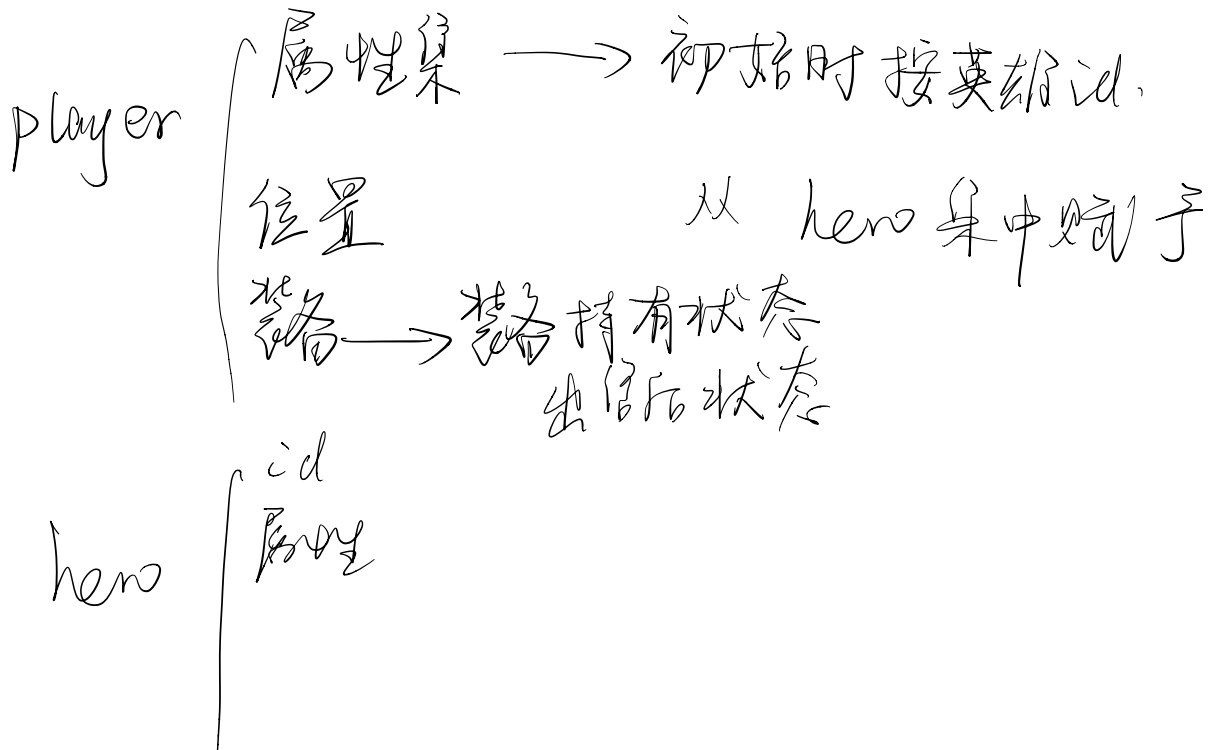 player
属性集 → 初始时按英雄id.
位置 从 hero 集中赋予
装备 → 装备持有状态
出售后状态
hero
id
属性